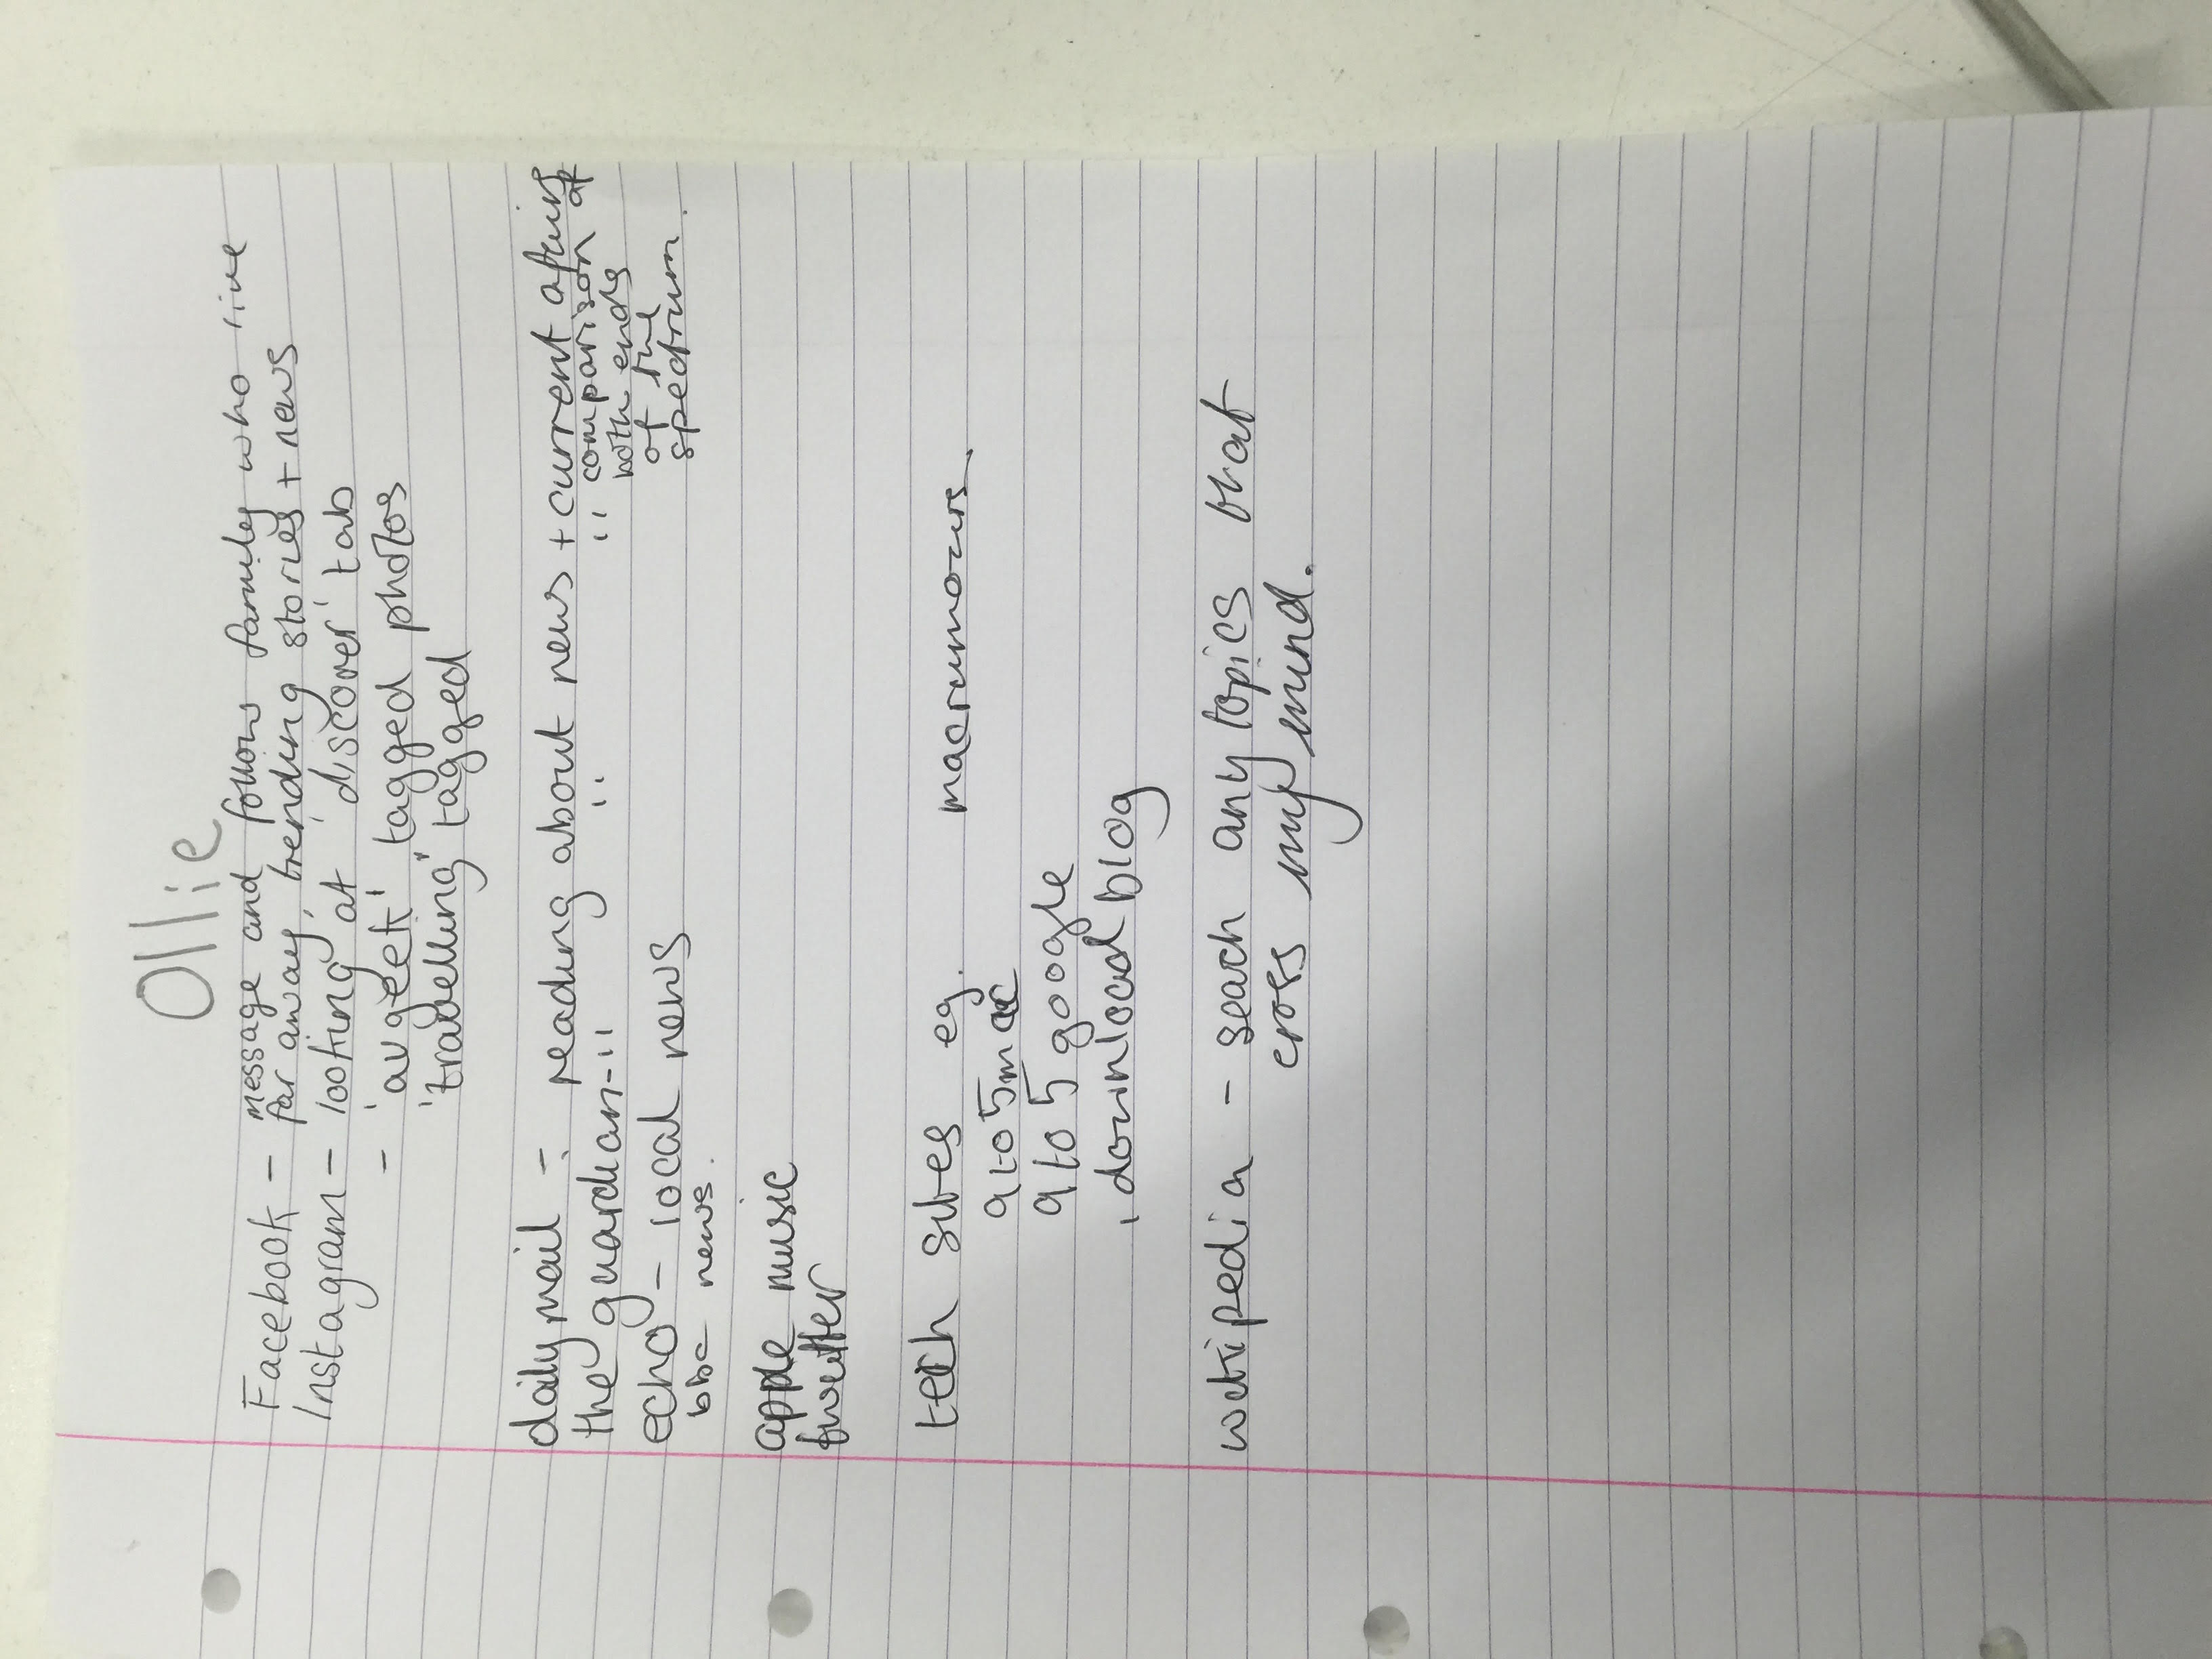 Ollie
Facebook - message and follow family who live
far away, trending stories + news
Instagram - looking at 'discover' tab
- 'avgeek' tagged photos
'travelling' tagged
daily mail - reading about news + current affairs
the guardian - '' '' '' comparison of
both ends
of the
spectrum.
echo - local news
bbc news.
apple music
twitter
tech sites eg. macrumours
9to5mac
9to5google
, download blog
wikipedia - seach any topics that
cross my mind.